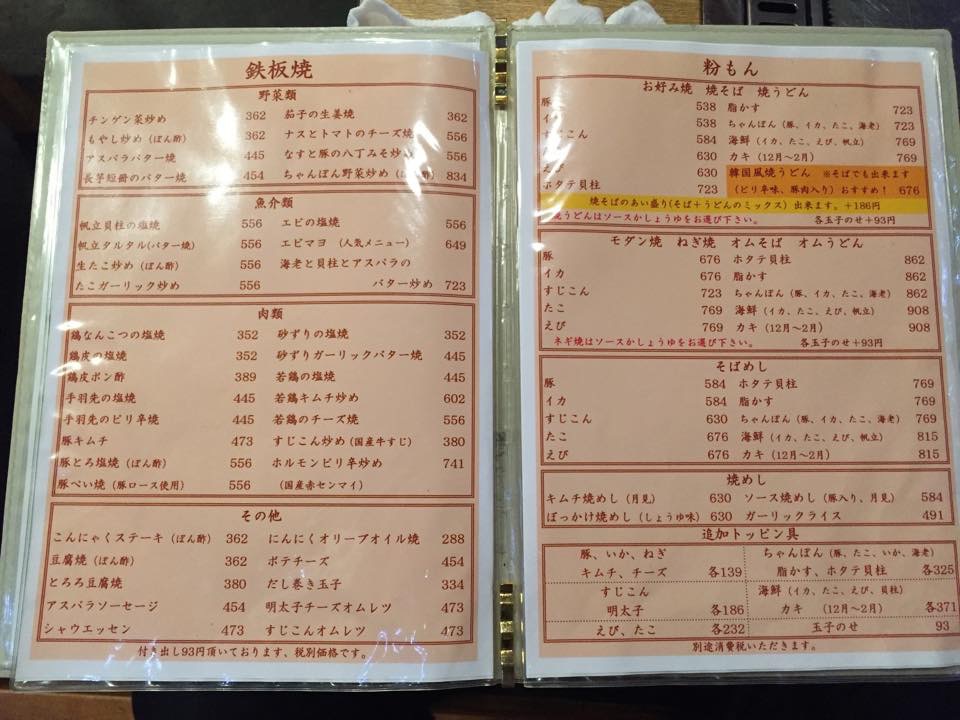 鉄板焼
野菜類
チンゲン菜炒め 362 茄子の生姜焼 362
もやし炒め（ぽん酢） 362 ナスとトマトのチーズ焼 556
アスパラバター焼 445 なすと豚の八丁みそ炒め 556
長芋短冊のバター焼 454 ちゃんぽん野菜炒め（ぽん酢） 834
魚介類
帆立貝柱の塩焼 556 エビの塩焼 556
帆立タルタル（バター焼） 556 エビマヨ （人気メニュー） 649
生たこ炒め（ぽん酢） 556 海老と貝柱とアスパラの
たこガーリック炒め 556 バター炒め 723
肉類
鶏なんこつの塩焼 352 砂ずりの塩焼 352
鶏皮の塩焼 352 砂ずりガーリックバター焼 445
鶏皮ポン酢 389 若鶏の塩焼 445
手羽先の塩焼 445 若鶏キムチ炒め 602
手羽先のピリ辛焼 445 若鶏のチーズ焼 556
豚キムチ 473 すじこん炒め（国産牛すじ） 380
豚とろ塩焼（ぽん酢） 556 ホルモンピリ辛炒め 741
豚ぺい焼（豚ロース使用） 556 （国産赤センマイ）
その他
こんにゃくステーキ（ぽん酢） 362 にんにくオリーブオイル焼 288
豆腐焼（ぽん酢） 362 ポテチーズ 454
とろろ豆腐焼 380 だし巻き玉子 334
アスパラソーセージ 454 明太子チーズオムレツ 473
シャウエッセン 473 すじこんオムレツ 473
付き出し93円頂いております、税別価格です。
粉もん
お好み焼 焼そば 焼うどん
豚 538 脂かす 723
イカ 538 ちゃんぽん（豚、イカ、たこ、海老） 723
すじこん 584 海鮮（イカ、たこ、えび、帆立） 769
630 カキ（12月～2月） 769
えび 630 韓国風焼うどん ※そばでも出来ます
ホタテ貝柱 723 （ピリ辛味、豚肉入り）おすすめ！ 676
焼そばのあい盛り（そば＋うどんのミックス）出来ます。＋186円
焼うどんはソースかしょうゆをお選び下さい。 各玉子のせ＋93円
モダン焼 ねぎ焼 オムそば オムうどん
豚 676 ホタテ貝柱 862
イカ 676 脂かす 862
すじこん 723 ちゃんぽん（豚、イカ、たこ、海老） 862
たこ 769 海鮮（イカ、たこ、えび、帆立） 908
えび 769 カキ（12月～2月） 908
ネギ焼はソースかしょうゆをお選び下さい。 各玉子のせ＋93円
そばめし
豚 584 ホタテ貝柱 769
イカ 584 脂かす 769
すじこん 630 ちゃんぽん（豚、イカ、たこ、海老） 769
たこ 676 海鮮（イカ、たこ、えび、帆立） 815
えび 676 カキ（12月～2月） 815
焼めし
キムチ焼めし（月見） 630 ソース焼めし（豚入り、月見） 584
ぼっかけ焼めし（しょうゆ味） 630 ガーリックライス 491
追加トッピン具
豚、いか、ねぎ ちゃんぽん（豚、たこ、いか、海老）
キムチ、チーズ 各139 脂かす、ホタテ貝柱 各325
すじこん 海鮮（イカ、たこ、えび、貝柱）
明太子 各186 カキ （12月～2月） 各371
えび、たこ 各232 玉子のせ 93
別途消費税いただきます。